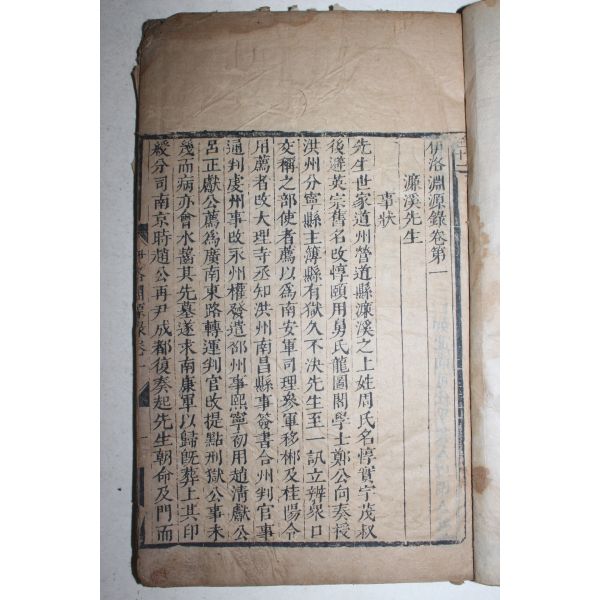 伊洛淵源錄卷第一
濂溪先生
事狀
先生世家道州營道縣濂溪之上姓周氏名惇實字茂叔
後避英宗舊名改惇頤用舅氏龍圖閣學士鄭公向奏授
洪州分寧縣主簿縣有獄久不決先生至一訊立辨衆口
交稱之部使者薦以爲南安軍司理參軍移郴及桂陽令
用薦者改大理寺丞知洪州南昌縣事簽書合州判官事
通判虔州事改永州權發遣邵州事熙寧初用趙清獻公
呂正獻公薦爲廣南東路轉運判官改提點刑獄公事未
幾而病亦會水齧其先墓遂求南康軍以歸旣葬上其印
綬分司南京時趙公再尹成都復奏起先生朝命及門而
伊洛淵源錄卷一